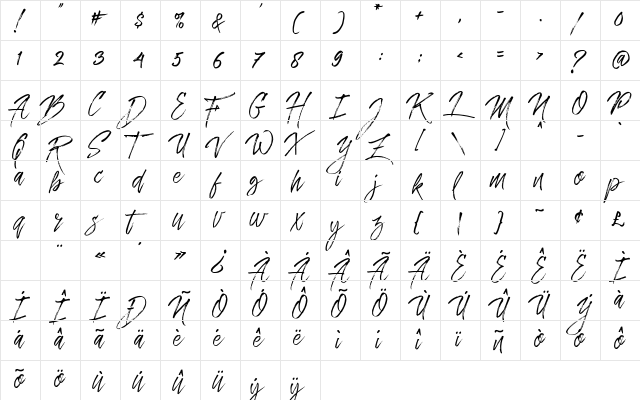 ! " # $ % & ' ( ) * + , - . / 0
1 2 3 4 5 6 7 8 9 : ; < = > ? @
A B C D E F G H I J K L M N O P
Q R S T U V W X Y Z [ \ ] ^ _
a b c d e f g h i j k l m n o p
q r s t u v w x y z { | } ~ ¢ £
¨ « ´ » ¿ À Á Â Ã Ä È É Ê Ë Ì
Í Î Ï Ð Ñ Ò Ó Ô Õ Ö Ù Ú Û Ü Ý à
á â ã ä è é ê ë ì í î ï ñ ò ó ô
õ ö ù ú û ü ý ÿ